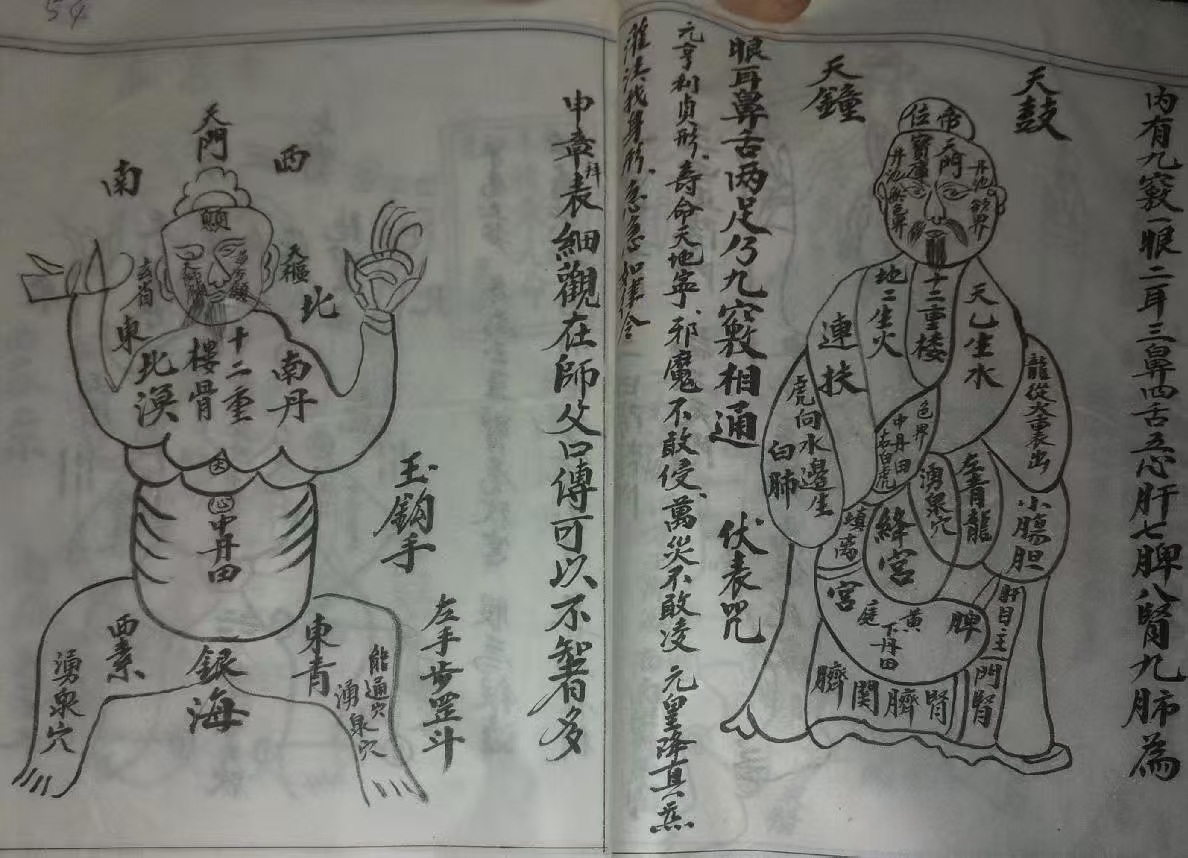 內有九竅一眼二耳三鼻四舌五心肝七脾八腎九肺為
天鼓
天鐘
帝位
天門
寶庫
丹池
欲界
丹池
無色界
十二重楼
地二生火
天乙生水
連扶
虎向水邊生
白肺
龍從火裏出
色界
中丹田
右白虎
湧泉穴
左青龍
小腸胆
絳宮
宮
黃庭
下丹田
脾
肝目主
一門腎
臍関臍腎
眼耳鼻舌两足乃九竅相通
伏表咒
元亨利貞形、寿命天地寧、邪魔不敢侵、萬災不敢凌
元皇降真炁
灌洪我身形、急急如律令
申章拜表細觀在師父口傳可以不智多
54
天門
西
南
天樞
北
東
十二重
樓骨
南丹
北溟
心
中丹田
玉鈎手
左手步罡斗
東青
西素
銀海
湧泉穴
能通穴
湧泉穴